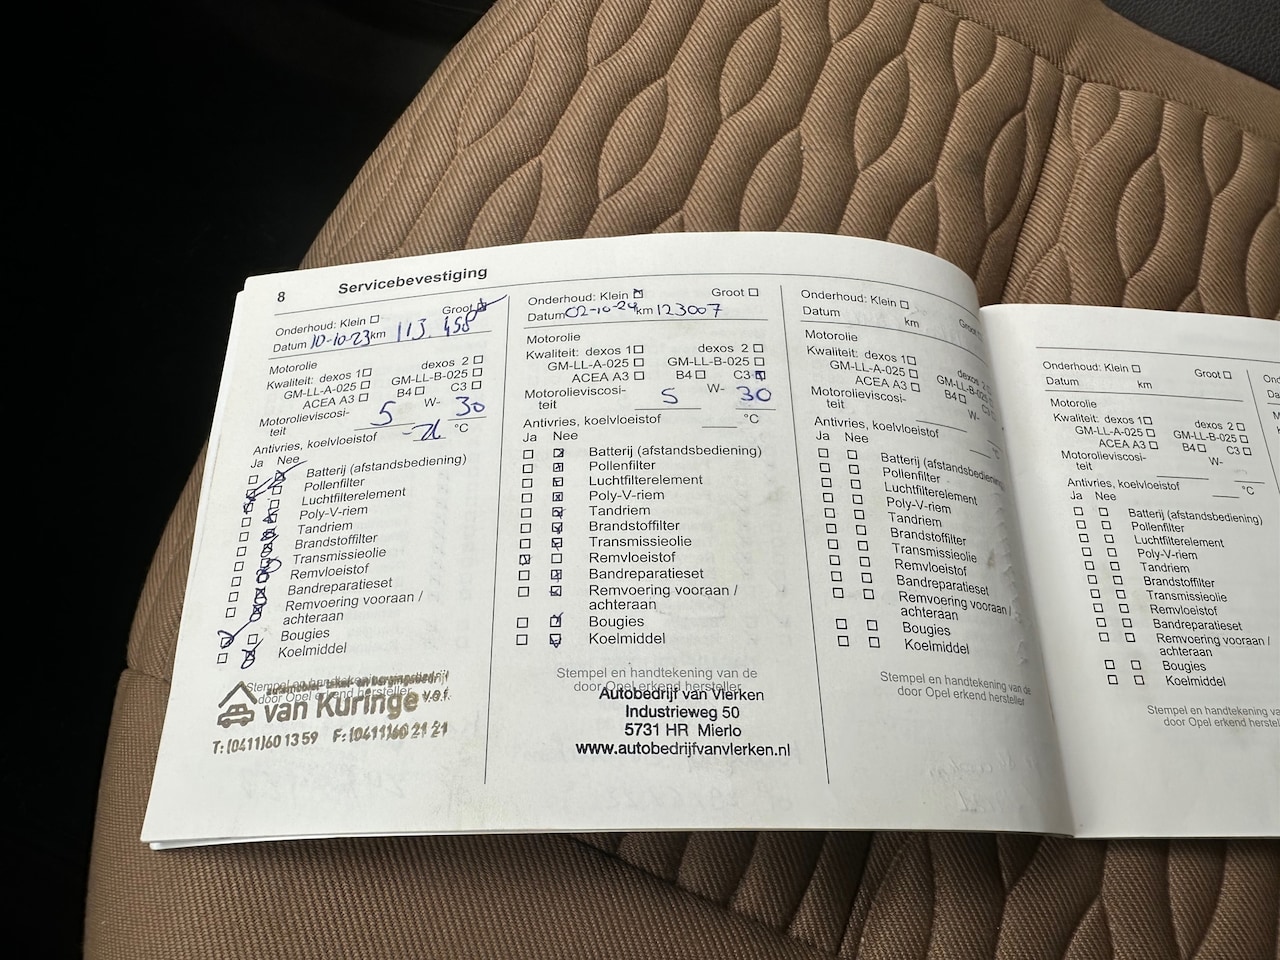 8 Servicebevestiging
Onderhoud: Klein Groot
Datum 10-10-23 km 113.458
Motorolie
Kwaliteit: dexos 1 dexos 2
GM-LL-A-025 GM-LL-B-025
ACEA A3 B4 C3
Motorolieviscosi-
teit 5 W- 30
Antivries, koelvloeistof °C
Ja Nee
Batterij (afstandsbediening)
Pollenfilter
Luchtfilterelement
Poly-V-riem
Tandriem
Brandstoffilter
Transmissieolie
Remvloeistof
Bandreparatieset
Remvoering vooraan /
achteraan
Bougies
Koelmiddel
Stempel en handtekening van de
door Opel erkend hersteller
van Kuringe v.o.f.
T: (0411)60 13 59 F: (0411)60 21 21
Onderhoud: Klein Groot
Datum 02-10-24 km 123007
Motorolie
Kwaliteit: dexos 1 dexos 2
GM-LL-A-025 GM-LL-B-025
ACEA A3 B4 C3
Motorolieviscosi-
teit 5 W- 30
Antivries, koelvloeistof °C
Ja Nee
Batterij (afstandsbediening)
Pollenfilter
Luchtfilterelement
Poly-V-riem
Tandriem
Brandstoffilter
Transmissieolie
Remvloeistof
Bandreparatieset
Remvoering vooraan /
achteraan
Bougies
Koelmiddel
Stempel en handtekening van de
door Opel erkend hersteller
Autobedrijf van Vlerken
Industrieweg 50
5731 HR Mierlo
www.autobedrijfvanvlerken.nl
Onderhoud: Klein Groot
Datum km
Motorolie
Kwaliteit: dexos 1 dexos 2
GM-LL-A-025 GM-LL-B-025
ACEA A3 B4 C3
Motorolieviscosi-
teit W-
Antivries, koelvloeistof °C
Ja Nee
Batterij (afstandsbediening)
Pollenfilter
Luchtfilterelement
Poly-V-riem
Tandriem
Brandstoffilter
Transmissieolie
Remvloeistof
Bandreparatieset
Remvoering vooraan /
achteraan
Bougies
Koelmiddel
Stempel en handtekening van de
door Opel erkend hersteller
Onderhoud: Klein Groot
Datum km
Motorolie
Kwaliteit: dexos 1 dexos 2
GM-LL-A-025 GM-LL-B-025
ACEA A3 B4 C3
Motorolieviscosi-
teit W-
Antivries, koelvloeistof °C
Ja Nee
Batterij (afstandsbediening)
Pollenfilter
Luchtfilterelement
Poly-V-riem
Tandriem
Brandstoffilter
Transmissieolie
Remvloeistof
Bandreparatieset
Remvoering vooraan /
achteraan
Bougies
Koelmiddel
Stempel en handtekening va
door Opel erkend hersteller